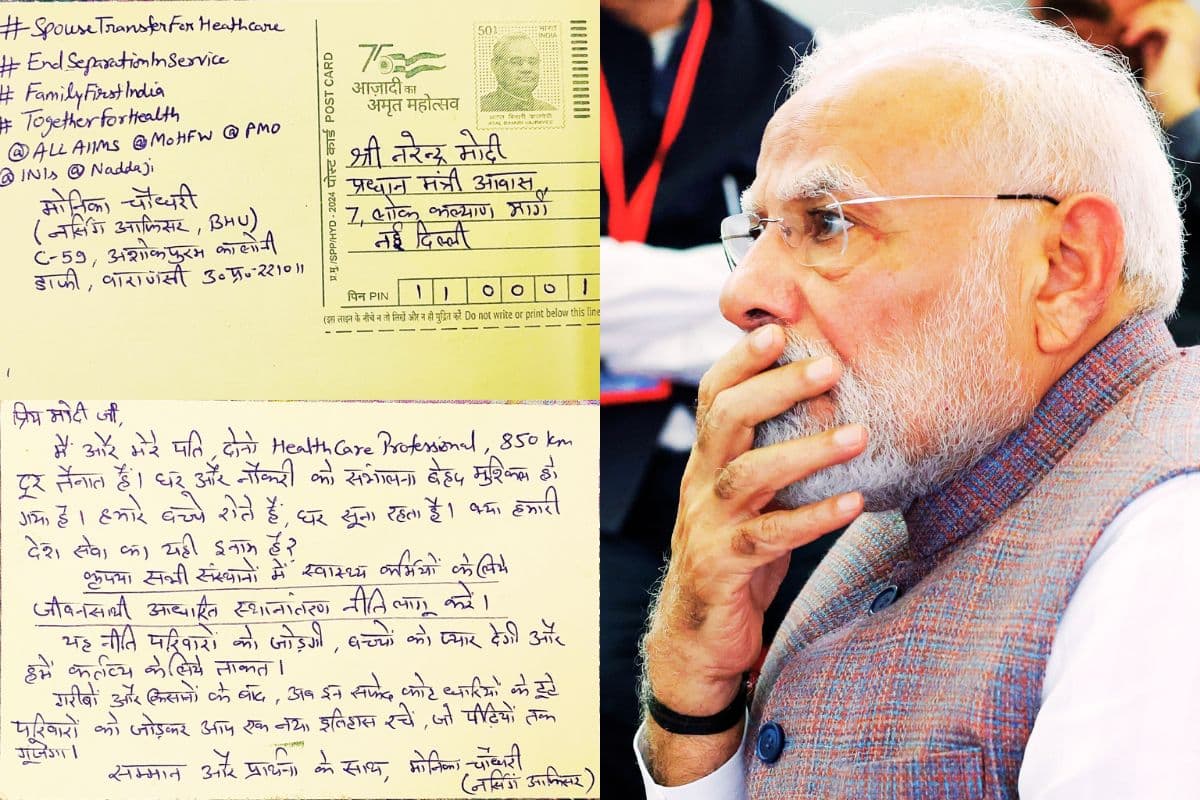 #SpouseTransferForHeathcare
# EndSeparationInService
# FamilyFirstIndia
# TogetherforHealth
@ALL AIIMS @MoHFW @PMO
@INIs @Naddaji
मोनिका चौधरी
(नर्सिंग आफिसर, BHU)
C-59, अशोकपुरम कालोनी
डाफी, वाराणसी उ०प्र०-221011
प्र.मु./SPP/HYD - 2024 पोस्ट कार्ड POST CARD
75
आज़ादी का
अमृत महोत्सव
501
भारत
INDIA
अटल बिहारी वाजपेयी
ATAL BIHARI VAJPAYEE
श्री नरेन्द्र मोदी
प्रधान मंत्री आवास
7, लोक कल्याण मार्ग
नई दिल्ली
पिन PIN 1 1 0 0 0 1
(इस लाइन के नीचे न तो लिखें और न ही मुद्रित करें Do not write or print below this line
प्रिय मोदी जी,
मैं और मेरे पति, दोनों HealthCare Professional, 850 km
दूर तैनात हैं। घर और नौकरी को संभालना बेहद मुश्किल हो
गया है। हमारे बच्चे रोते हैं, घर सूना रहता है। क्या हमारी
देश सेवा का यही इनाम है?
कृपया सभी संस्थानों में स्वास्थ्य कर्मियों के लिये
जीवनसाथी आधारित स्थानांतरण नीति लागू करें।
यह नीति परिवारों को जोड़गी, बच्चों को प्यार देगी और
हमें कर्तव्य के लिये ताकत।
गरीबों और किसानों के बाद, अब इन सफेद कोट धारियों के टूटे
परिवारों को जोड़कर आप एक नया इतिहास रचें, जो पीढ़ियों तक
गूंजेगा।
सम्मान और प्रार्थना के साथ, मोनिका चौधरी
(नर्सिंग आफिसर)